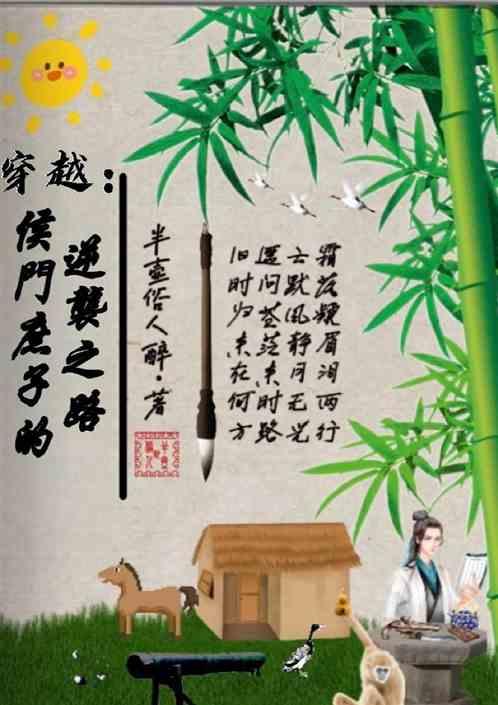 穿越:
侯門庶子的
逆襲之路
半壶俗人醉·著
霜落眉泪两行
云默风静月无光
遥问苍茫来时路
旧时归来在何方